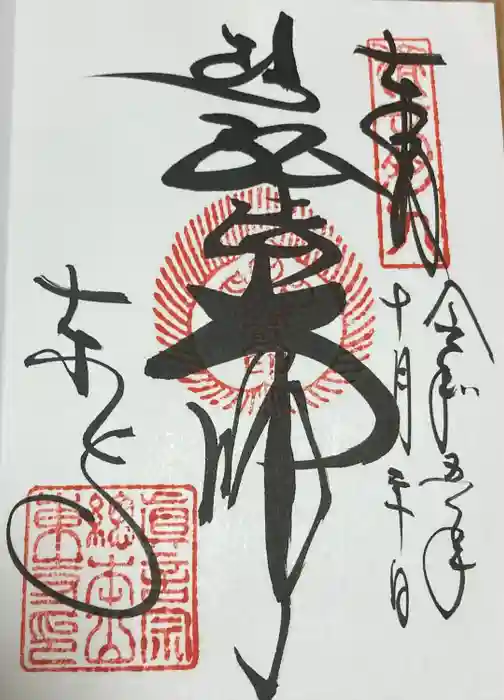 奉拝
令和五年
十月二十日
弘法大師
東寺
真言宗
総本山
東寺印